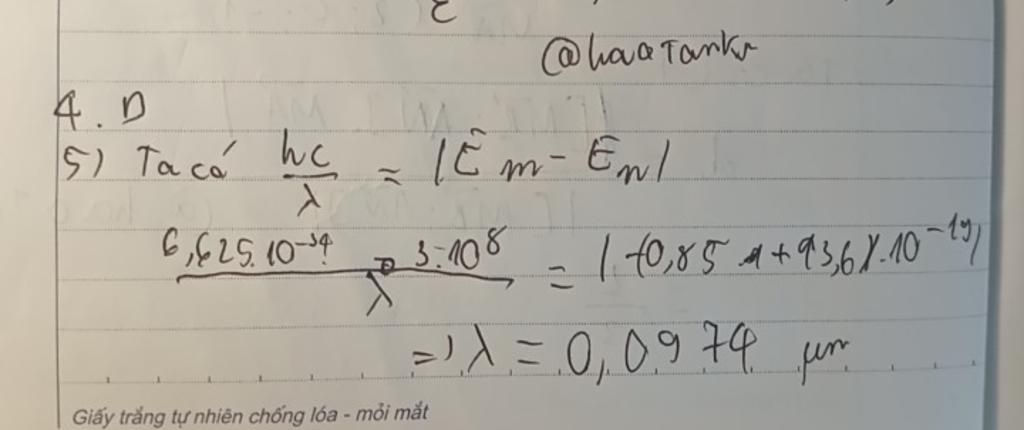 ε
@haatankr
4. D
5) Ta có hc/λ = |Em - En|
6,625.10⁻³⁴ . 3.10⁸ / λ = |(-0,85 + 13,6).10⁻¹⁹|
=> λ = 0,0974 μm
Giấy trắng tự nhiên chống lóa - mỏi mắt